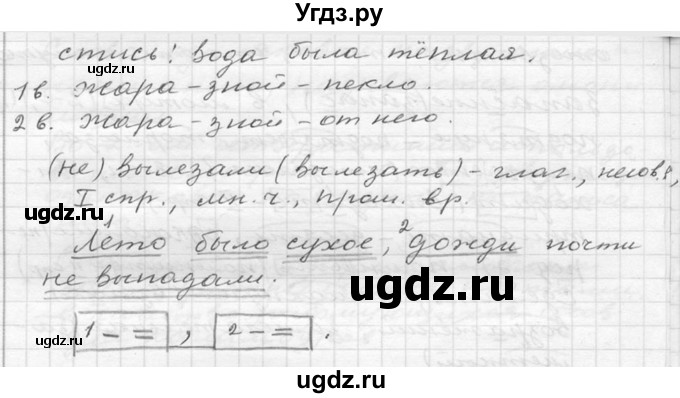 Угдз.ру
стись! Вода была тёплая.
1в. Жара - зной - пекло.
2в. Жара - зной - от него.
(не) вылезали (вылезать) - глаг., несов.в,
I спр., мн.ч., прош. вр.
1 Лето было сухое, 2 дожди почти
не выпадали.
1 - = , 2 - = .
©gdz.ru
©gdz.ru
©gdz.ru
©gdz.ru
ugdz.ru
ugdz.ru
ugdz.ru
ugdz.ru